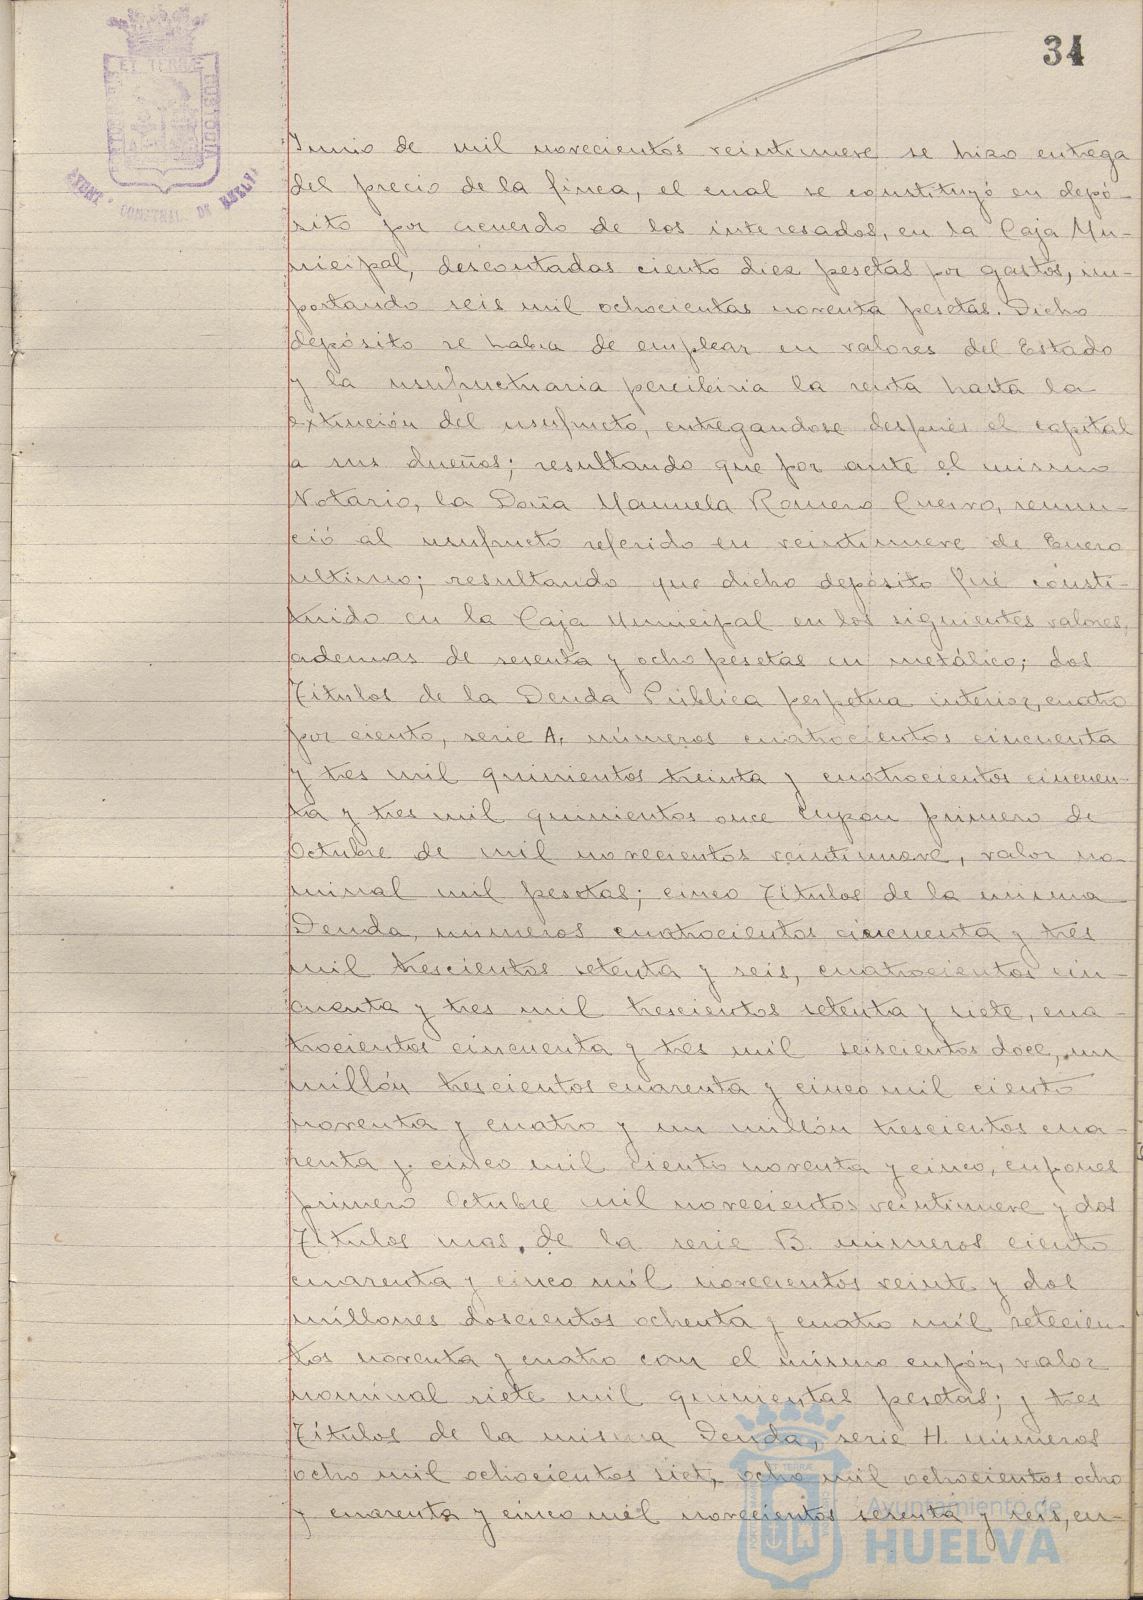 34
ET TERRÆ
CUSTODIA
AYUNT. CONSTNAL. DE HUELVA
Junio de mil novecientos veintinueve se hizo entrega
del precio de la finca, el cual se constituyó en depó-
sito por acuerdo de los interesados, en la Caja Mu-
nicipal, descontadas ciento diez pesetas por gastos, im-
portando seis mil ochocientas noventa pesetas. Dicho
depósito se habia de emplear en valores del Estado
y la usufructuaria percibiria la renta hasta la
extinción del usufructo, entregandose después el capital
a sus dueños; resultando que por ante el mismo
Notario, la Doña Manuela Romero Cuervo, renun-
ció al usufructo referido en veintinueve de Enero
ultimo; resultando que dicho depósito fué consti-
tuido en la Caja Municipal en los siguientes valores,
ademas de sesenta y ocho pesetas en metálico; dos
Titulos de la Deuda Pública perpetua interior, cuatro
por ciento, serie A, números cuatrocientos cincuenta
y tres mil quinientos treinta y cuatrocientos cincuen-
ta y tres mil quinientos once cupon primero de
Octubre de mil novecientos veintinueve, valor no-
minal mil pesetas; cinco Titulos de la misma
Deuda, numeros cuatrocientos cincuenta y tres
mil trescientos setenta y seis, cuatrocientos cin-
cuenta y tres mil trescientos setenta y siete, cua-
trocientos cincuenta y tres mil seiscientos doce, un
millón trescientos cuarenta y cinco mil ciento
noventa y cuatro y un millón trescientos cua-
renta y cinco mil ciento noventa y cinco, cupones
primero Octubre mil novecientos veintinueve y dos
Titulos mas de la serie B. numeros ciento
cuarenta y cinco mil novecientos veinte y dos
millones doscientos ochenta y cuatro mil setecien-
tos noventa y cuatro con el mismo cupón, valor
nominal siete mil quinientas pesetas; y tres
Titulos de la misma Deuda, serie H. números
ocho mil ochocientos siete, ocho mil ochocientos ocho
y cuarenta y cinco mil novecientos sesenta y seis, cu-
Ayuntamiento de
HUELVA